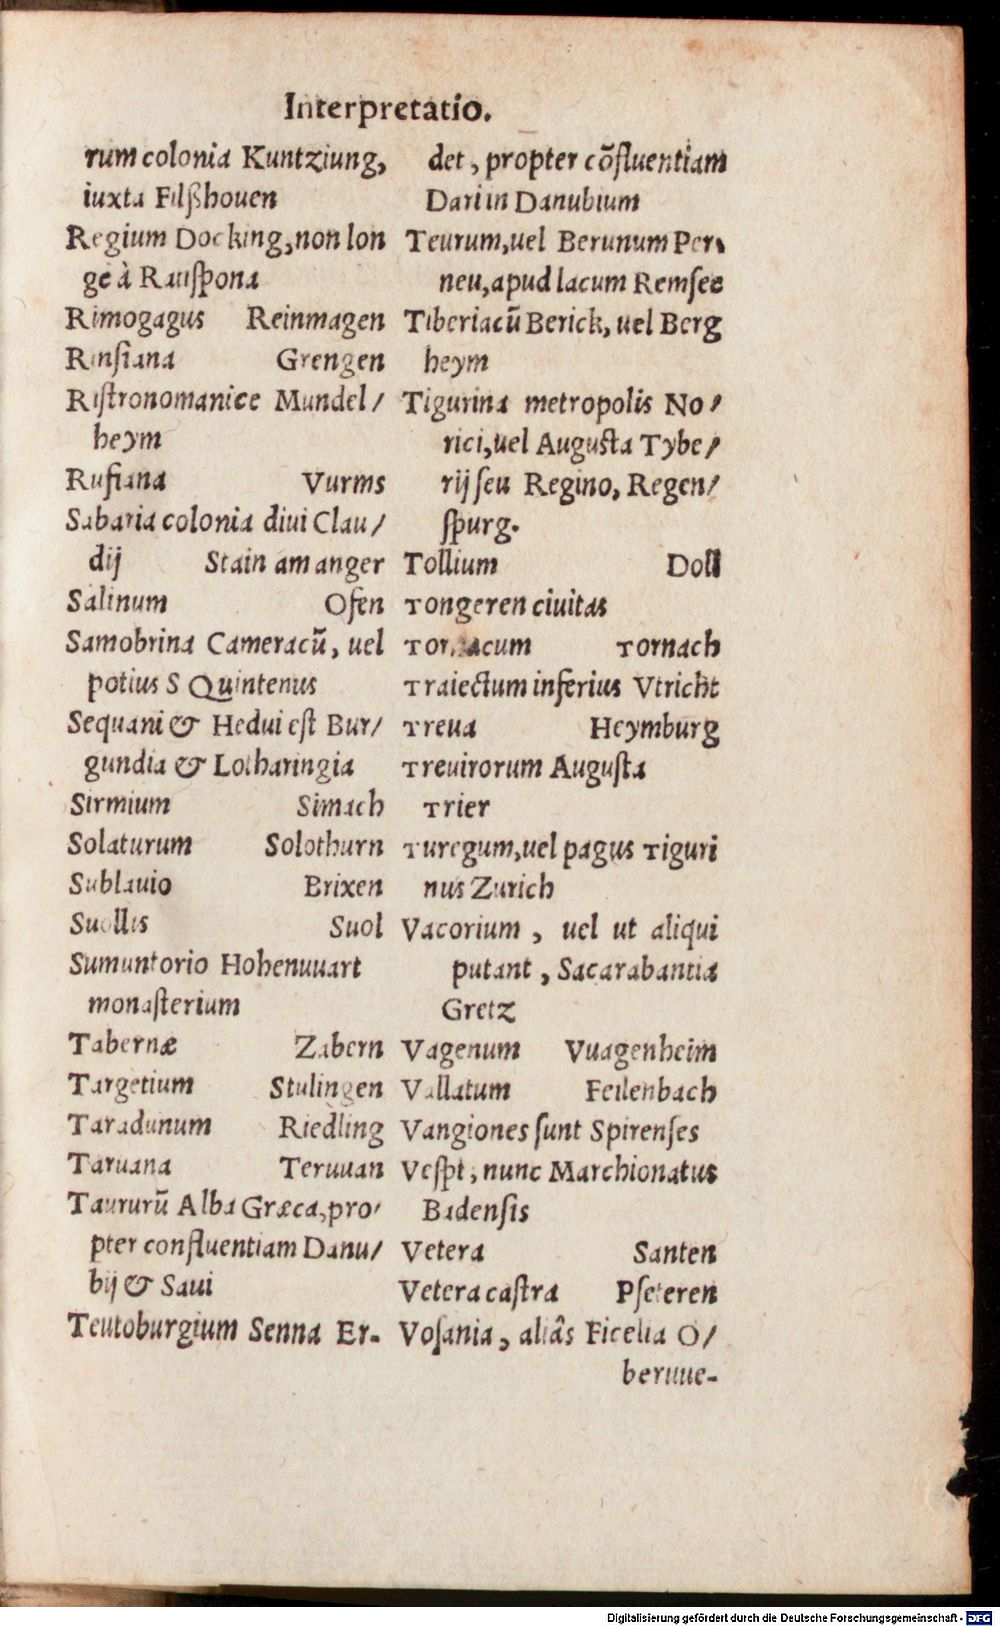 Interpretatio.
rum colonia Kuntziung,
iuxta Filßhouen
Regium Docking, non lon
ge à Rauſpona
Rimogagus Reinmagen
Rinſiana Grengen
Riſtronomanice Mundel/
heym
Rufiana Vurms
Sabaria colonia diui Clau/
dij Stain am anger
Salinum Ofen
Samobrina Cameracū, uel
potius S Quintenus
Sequani & Hedui eſt Bur/
gundia & Lotharingia
Sirmium Simach
Solaturum Solothurn
Sublauio Brixen
Suollis Suol
Sumuntorio Hohenuuart
monaſterium
Tabernæ Zabern
Targetium Stulingen
Taradunum Riedling
Taruana Teruuan
Taururū Alba Græca, pro/
pter confluentiam Danu/
bij & Saui
Teutoburgium Senna Er-
det, propter cōfluentiam
Dari in Danubium
Teurum, uel Berunum Per
neu, apud lacum Remſee
Tiberiacū Berick, uel Berg
heym
Tigurina metropolis No/
rici, uel Auguſta Tybe/
rij ſeu Regino, Regen/
ſpurg.
Tollium Doll
Tongeren ciuitas
Tornacum Tornach
Traiectum inferius Vtricht
Treua Heymburg
Treuirorum Auguſta
Trier
Turegum, uel pagus Tiguri
nus Zurich
Vacorium, uel ut aliqui
putant, Sacarabantia
Gretz
Vagenum Vuagenheim
Vallatum Feilenbach
Vangiones ſunt Spirenſes
Veſpt, nunc Marchionatus
Badenſis
Vetera Santen
Vetera caſtra Pſeteren
Voſania, aliâs Ficelia O/
beruue-
Digitalisierung gefördert durch die Deutsche Forschungsgemeinschaft - DFG